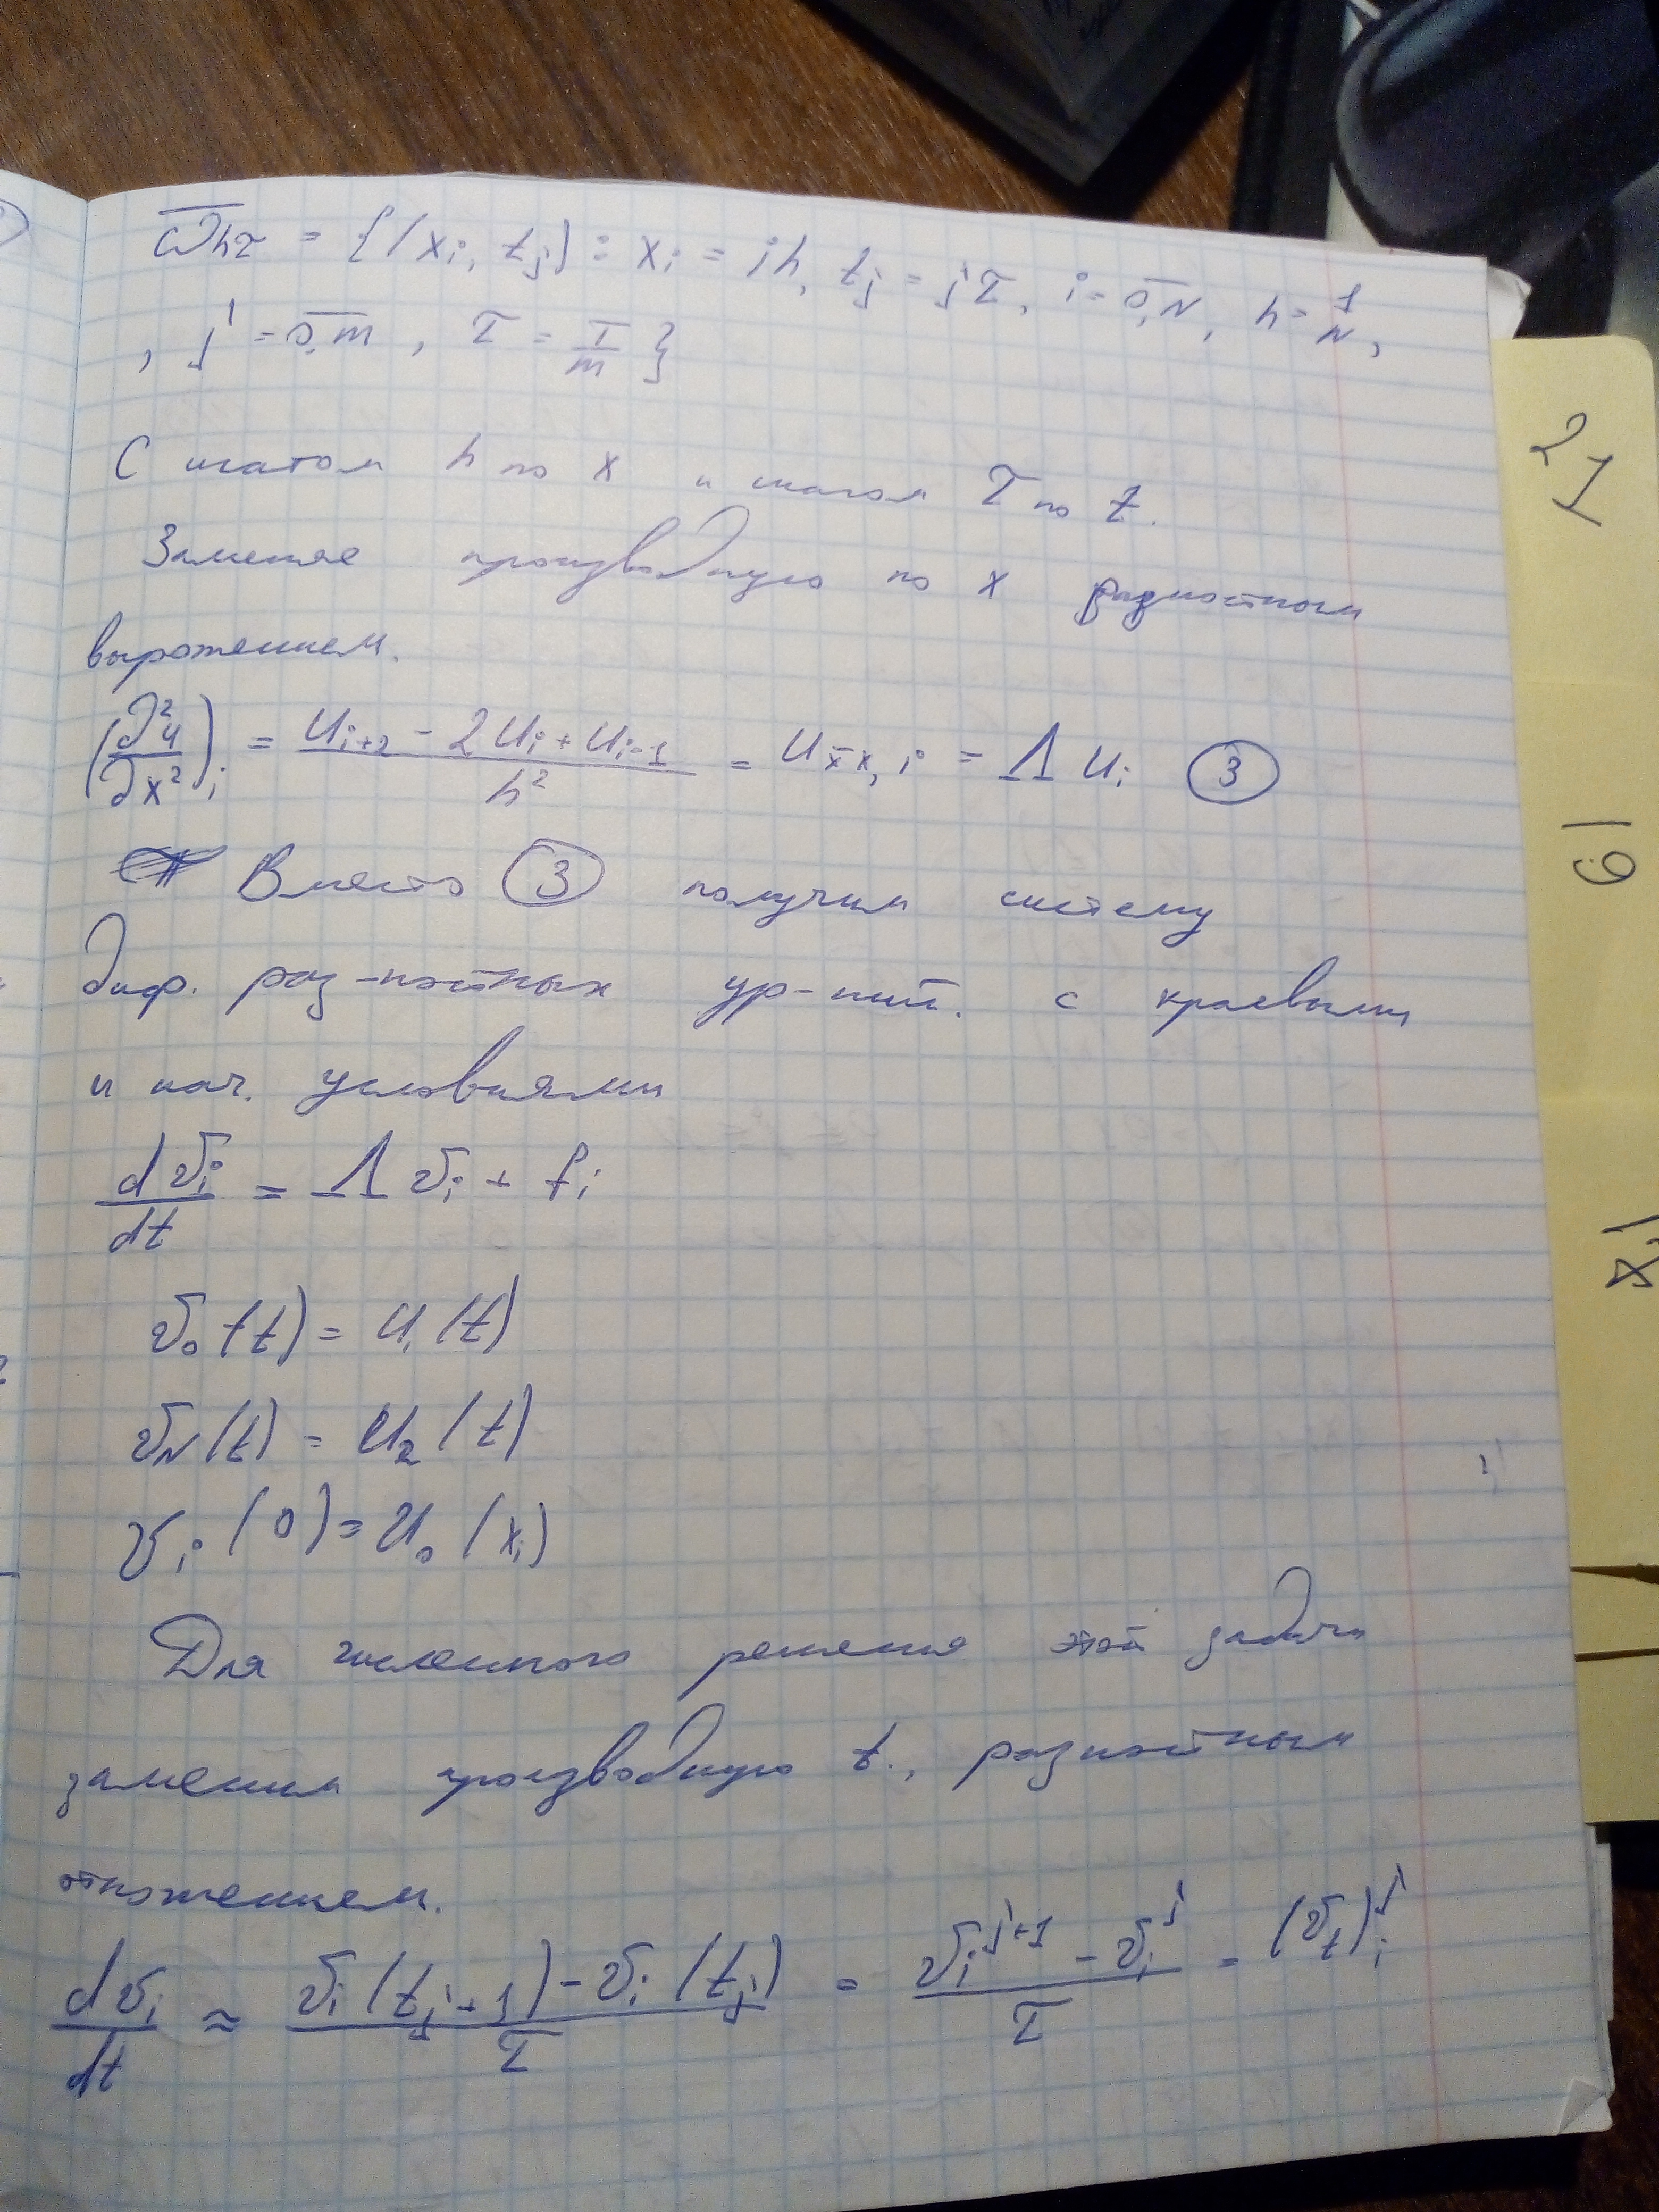 ω̅hτ = {(xi, tj) : xi = ih, tj = jτ, i = 0,N, h = 1/N,
, j = 0,m, τ = T/m }
С шагом h по x и шагом τ по t.
Заменяе производную по x разностным
выражением.
(∂²u/∂x²)i = (ui+1 - 2ui + ui-1)/h² = ux̄x,i = Λ ui (3)
Вместо (3) получим систему
диф. раз-ностных ур-ний. с краевыми
и нач. условиями
dvi/dt = Λ vi + fi
v0(t) = u1(t)
vN(t) = u2(t)
vi(0) = u0(xi)
Для численного решения этой задачи
заменим производную t., разностным
отножением.
dvi/dt ≈ (vi(tj+1) - vi(tj))/τ = (vi^j+1 - vi^j)/τ = (vt)i^j
21